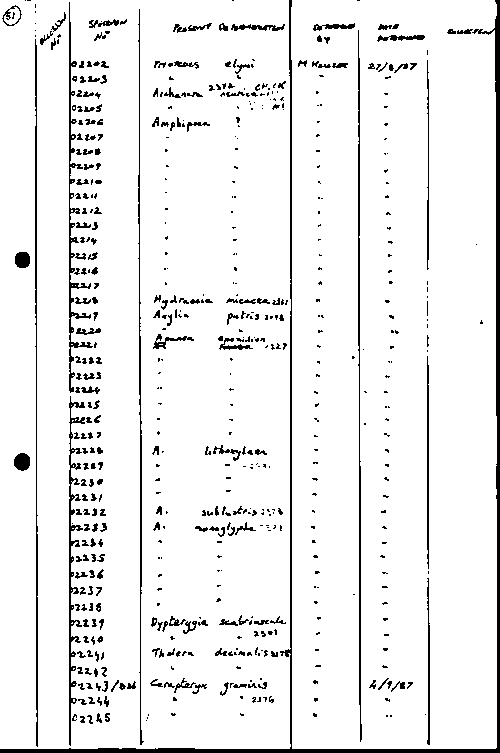 51
SPECIMEN Nº PRESENT DETERMINATION DETERMINED BY DATE DETERMINED COLLECTION
02202 elymi 27/8/87
02203 " " " "
02204 Archanara 2372 " "
02205 " " " "
02206 Amphipoea ? " "
02207 " " " "
02208 " " " "
02209 " " " "
02210 " " " "
02211 " " " "
02212 " " " "
02213 " " " "
02214 " " " "
02215 " " " "
02216 " " " "
02217 " " " "
02218 Hydraecia micacea 2361 " "
02219 Axylia putris 2098 " "
02220 " " " "
02221 Apamea " "
02222 " " " "
02223 " " " "
02224 " " " "
02225 " " " "
02226 " " " "
02227 " " " "
02228 A. lithoxylaea " "
02229 " " " "
02230 " " " "
02231 " " " "
02232 A. sublustris " "
02233 A. monoglypha " "
02234 " " " "
02235 " " " "
02236 " " " "
02237 " " " "
02238 " " " "
02239 Dypterygia scabriuscula " "
02240 " 2301 " "
02241 Tholera decimalis 2178 " "
02242 " " " "
02243 Cerapteryx graminis " 4/9/87
02244 " " 2176 " "
02245 " " " "